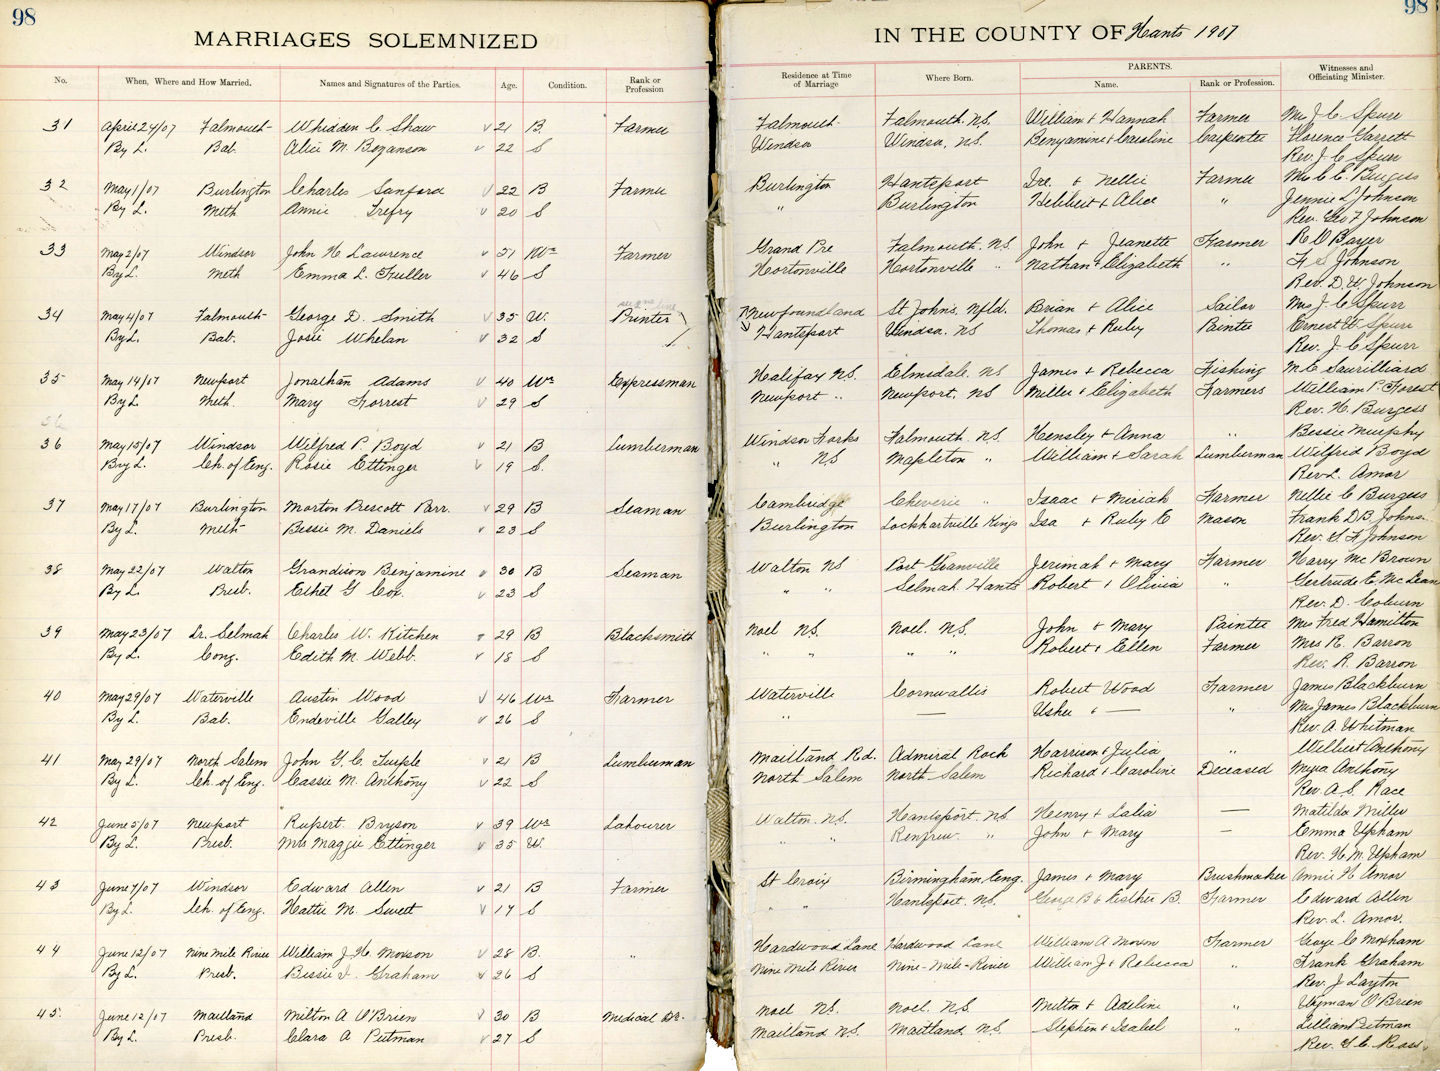 98
98
MARRIAGES SOLEMNIZED
IN THE COUNTY OF Hants 1907
No. When, Where and How Married. Names and Signatures of the Parties. Age. Condition. Rank or Profession Residence at Time of Marriage Where Born. PARENTS. Name. Rank or Profession. Witnesses and Officiating Minister.
31 April 24/07 Falmouth Whidden C Shaw 21 B. Farmer Falmouth Falmouth N.S. William & Hannah Farmer Mrs J. C. Spurr
By L. Bab. Alice M. Bezanson 22 S Windsor Windsor, N.S. Benjamine & Caroline Carpenter Florence Garrett
Rev. J. C. Spurr
32 May 1/07 Burlington Charles Sanford 22 B Farmer Burlington Hantsport Ire. & Nellie Farmer Mrs C. E. Burgess
By L. Meth Annie Trefry 20 S " Burlington Hebbert & Alice " Jennie L Johnson
Rev. Geo F Johnson
33 May 2/07 Windsor John H Lawrence 51 Wr Farmer Grand Pre Falmouth, N.S. John & Jeanette Farmer R O Bayer
By L. Meth Emma L. Fuller 46 S Hortonville Hortonville " Nathan & Elizabeth " F S Johnson
Rev. D. W. Johnson
see one line
34 May 4/07 Falmouth George D. Smith 35 W. Printer Newfoundland St Johns. Nfld. Brian & Alice Sailor Mrs J. C. Spurr
By L. Bab. Josie Whelan 32 S Hantsport Windsor. NS Thomas & Ruby Painter Ernest W Spurr
Rev. J. C Spurr
35 May 14/07 Newport Jonathan Adams 40 Wr Expressman Halifax N.S. Elmsdale. NS James & Rebecca Fishing M. C
By L. Meth. Mary Forrest 29 S Newport " Newport, N.S Miller & Elizabeth Farmers William P. Forest
Rev. H. Burgess
36
36 May 15/07 Windsor Wilfred P. Boyd 21 B Lumberman Windsor Forks Falmouth N.S. Hensley & Anna " Bessie Murphy
By L. Ch. of Eng. Rosie Ettinger 19 S. " NS Mapleton " William & Sarah Lumberman Wilfrid Boyd
Rev L. Amor
37 May 17/07 Burlington Morton Prescott Parr. 29 B Seaman Cambridge Cheverie " Isaac & Miriah Farmer Nellie C Burgess
By L. Meth Bessie M. Daniels 23 S Burlington Lockhartville Kings Isa & Ruby E Mason Frank D.B. Johns.
Rev. G. F Johnson
38 May 22/07 Walton Grandison Benjamine 30 B Seaman Walton NS Port Granville Jerimah & Mary Farmer Harry Mc Brown
By L. Presb. Ethel G Cox. 23 S " " Selmah Hants Robert & Olivia " Gertrude E. McLean
Rev. D. Coburn
39 May 23/07 Lr. Selmah Charles W. Kitchen 29 B Blacksmith Noel N.S. Noel. N.S. John & Mary Painter Mrs Fred Hamilton
By L. Cong. Edith M. Webb. 18 S " " " " Robert & Ellen Farmer Mrs R. Barron
Rev. R. Barron
40 May 29/07 Waterville Austin Wood 46 Wr Farmer Waterville Cornwallis Robert Wood Farmer James Blackburn
By L. Bab. Endeville Galley 26 S " — Usher & — " Mrs James Blackburn
Rev. A. Whitman
41 May 29/07 North Salem John G. C. Tupple 21 B Lumberman Maitland Rd. Admiral Rock Harrison & Julia " Wilbert Anthony
By L. Ch. of Eng. Cassie M. Anthony 22 S North Salem North Salem Richard & Caroline Deceased Myra Anthony
Rev. A. S. Race
42 June 5/07 Newport Rupert Bryson 39 Wr Labourer Walton. N.S. Hantsport. NS Henry & Lalia — Matilda Miller
By L. Presb. Mrs Maggie Ettinger 35 W. " " Renfrew. " John & Mary — Emma Upham
Rev. H. M. Upham
43 June 7/07 Windsor Edward Allen 21 B Farmer St Croix Birmingham, Eng. James & Mary Brushmaker Annie H Amor
By L. Ch. of Eng. Hattie M. Sweet 17 S " " Hantsport. N.S. George B & Esther B. Farmer Edward Allen
Rev. L. Amor.
44 June 12/07 Nine Mile River William J. H. Moxson 28 B. " Hardwood Lane Hardwood Lane William A Moxon Farmer George C Moxham
By L. Presb. Bessie V. Graham 26 S Nine Mile River Nine-Mile-River William J & Rebecca " Frank Graham
Rev. J Layton
45. June 12/07 Maitland Milton A O'Brien 30 B Medical Dr. Noel N.S. Noel. N.S Milton & Adeline " Wyman O'Brien
By L. Presb. Clara A Putman 27 S Maitland N.S. Maitland N.S Stephen & Isabel " Lillian Putman
Rev. G. C. Ross